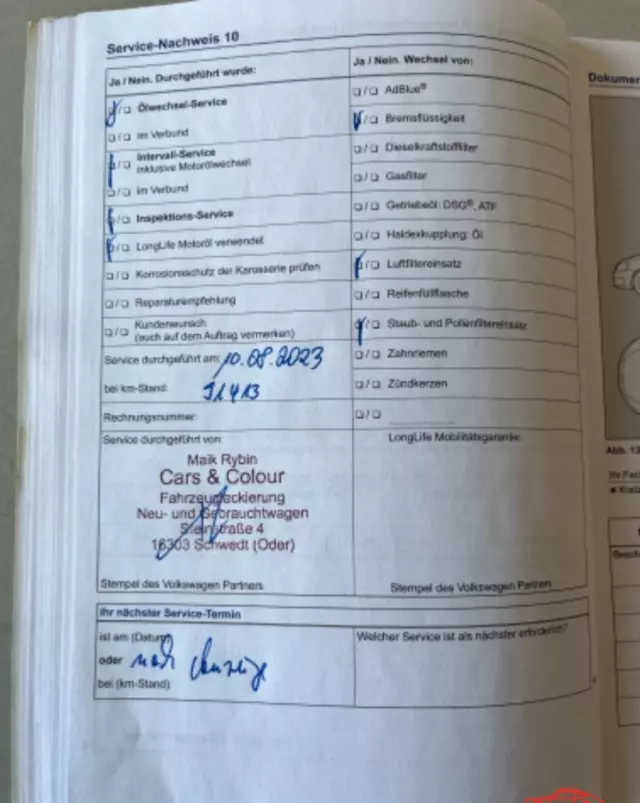 Service-Nachweis 10
Ja / Nein. Durchgeführt wurde:
Ölwechsel-Service
im Verbund
Intervall-Service
inklusive Motorölwechsel
im Verbund
Inspektions-Service
LongLife Motoröl verwendet
Korrosionsschutz der Karosserie prüfen
Reparaturempfehlung
Kundenwunsch
(auch auf dem Auftrag vermerken)
Service durchgeführt am: 10.08.2023
bei km-Stand: 91413
Rechnungsnummer:
Service durchgeführt von:
Maik Rybin
Cars & Colour
Fahrzeuglackierung
Neu- und Gebrauchtwagen
Steinstraße 4
16303 Schwedt (Oder)
Stempel des Volkswagen Partners
Ja / Nein. Wechsel von:
AdBlue®
Bremsflüssigkeit
Dieselkraftstofffilter
Gasfilter
Getriebeöl: DSG®, ATF
Haldexkupplung: Öl
Luftfiltereinsatz
Reifenfüllflasche
Staub- und Pollenfiltereinsatz
Zahnriemen
Zündkerzen
LongLife Mobilitätsgarantie:
Stempel des Volkswagen Partners
Ihr nächster Service-Termin
ist am (Datum)
oder nach Anzeige
bei (km-Stand):
Welcher Service ist als nächster erforderlich?
Dokumen
Abb. 13
Ihr Fac